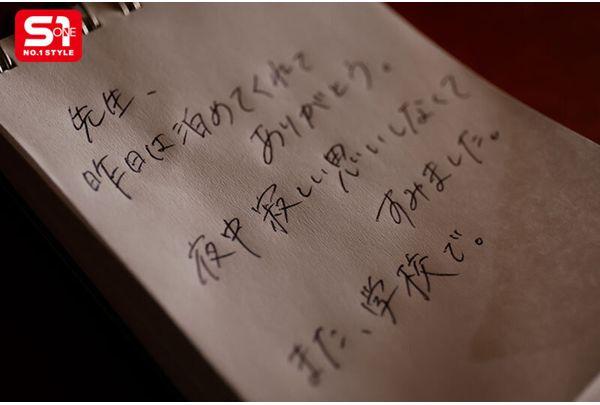 S1
ONE
NO.1 STYLE
先生、
昨日は泊めてくれて
ありがとう。
夜中寂しい思いしなくて
すみました。
また、学校で。